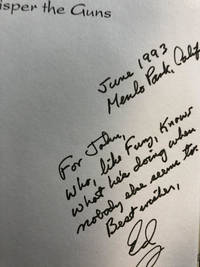 isper the Guns
June 1993
Menlo Park, Calif
For John,
who, like Fury, knows
what he's doing when
nobody else seems to.
Best wishes,
Ed